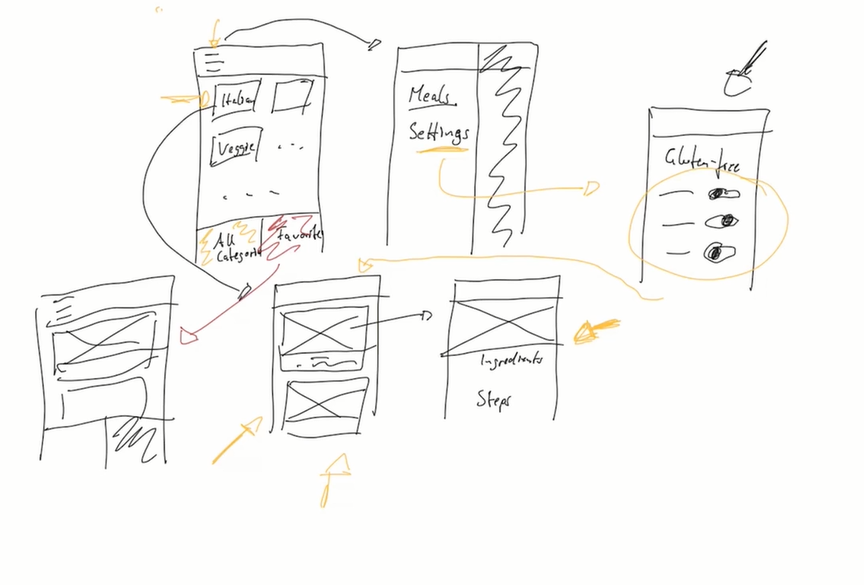 Italian
Veggie
...
...
All
Categori
Favorite
Meals
Settings
Gluten-free
Ingredients
Steps